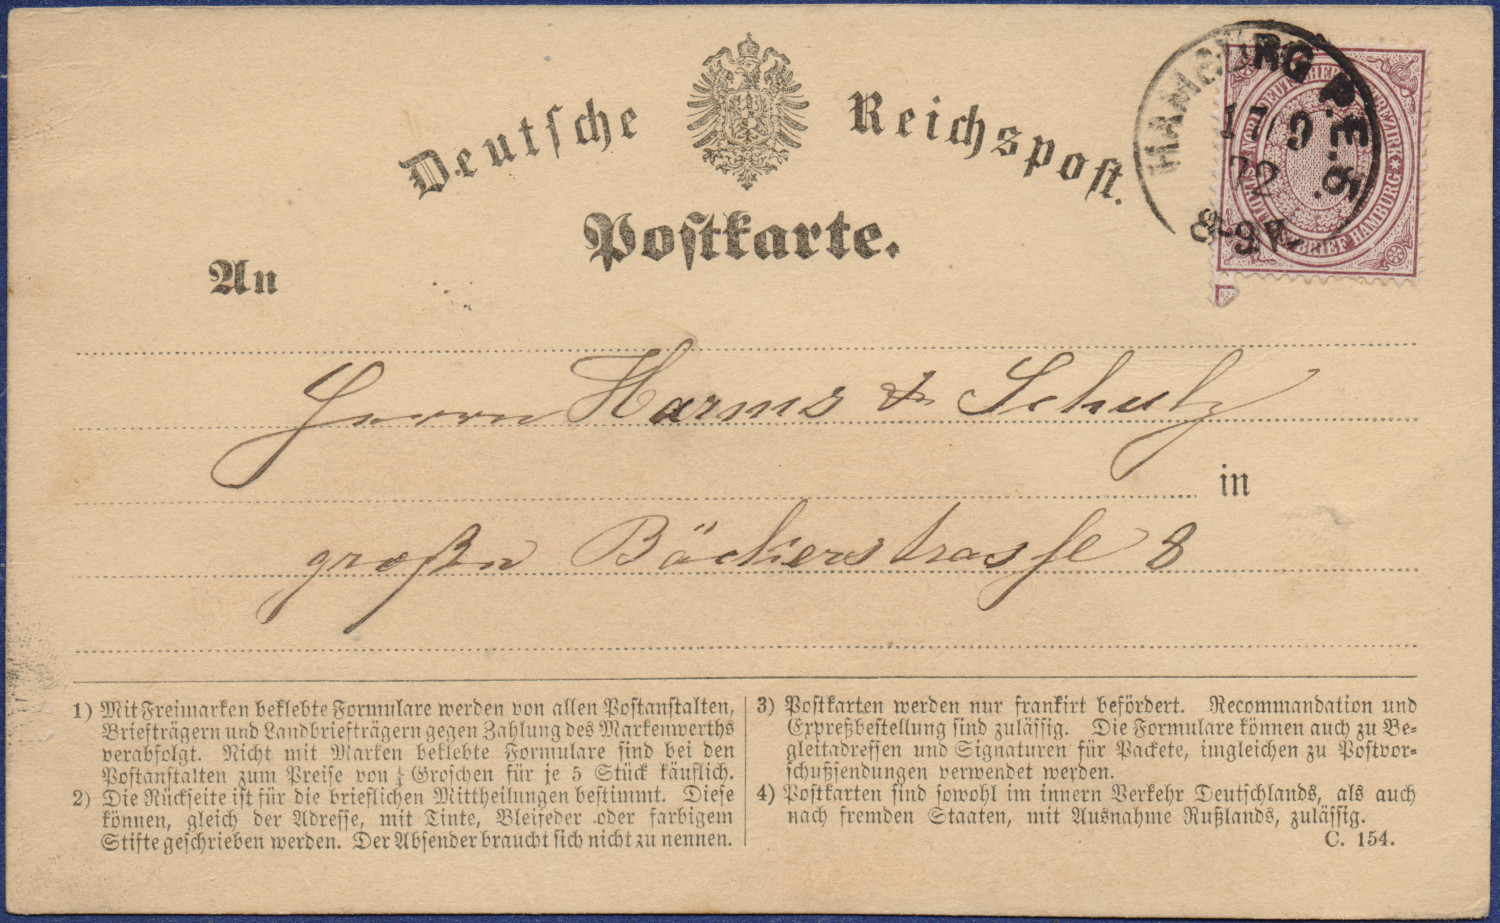 Deutsche Reichspost.
Postkarte.
HAMBURG P.E.6.
17 9
72
8-9V
NORDDEUTSCHER POSTBEZIRK * STADTPOSTBRIEF HAMBURG *
An
Herrn Harms & Schulz
in
großn Bäckerstrasse 8
1) Mit Freimarken beklebte Formulare werden von allen Postanstalten,
Briefträgern und Landbriefträgern gegen Zahlung des Markenwerths
verabfolgt. Nicht mit Marken beklebte Formulare sind bei den
Postanstalten zum Preise von ¼ Groschen für je 5 Stück käuflich.
2) Die Rückseite ist für die brieflichen Mittheilungen bestimmt. Diese
können, gleich der Adresse, mit Tinte, Bleifeder oder farbigem
Stifte geschrieben werden. Der Absender braucht sich nicht zu nennen.
3) Postkarten werden nur frankirt befördert. Recommandation und
Expreßbestellung sind zulässig. Die Formulare können auch zu Be-
gleitadressen und Signaturen für Packete, imgleichen zu Postvor-
schußsendungen verwendet werden.
4) Postkarten sind sowohl im innern Verkehr Deutschlands, als auch
nach fremden Staaten, mit Ausnahme Rußlands, zulässig.
C. 154.